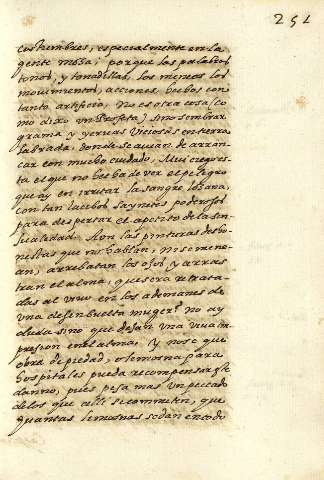 251
costumbres, especialmente en la
gente moza; porque las palabras
tonos, y tonadillas, los meneos los
movimientos, acciones hechos con
tanto artificio, no es otra cosa (co
mo dixo un Profeta) sino sembrar
grama y yervas viciosas en tierra
labrada, donde se avian de arran
car con mucho cuidado. Mui ciego es
ta el que no hecha de ver el peligro
que ay en irritar la sangre lozana,
con tan lacibos saynetes poderosos
para despertar el apetito de la sen
sualidad. Aon las pinturas desho
nestas que no hablan, ni se mene
an, arrebatan los ojos y arras
tran el alma, que sera retrata
das al vivo en los ademanes de
una desenbuelta muger? no ay
duda sino que dejan una viva im
presion en el alma; Y no se que
obra de piedad, o lemosna para
hospitales pueda recompensar este
danno, pues pesa mas un peccado
de los que alli se cometen, que
quantas lemosnas se dan en todo